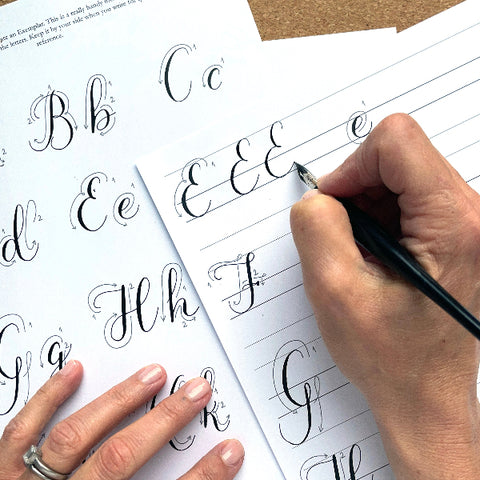 an Exemplar. This is a really handy
the letters. Keep it by your side when you write the
reference.
B b C c
d E e
G g H h
k
E E E e
F
G
H